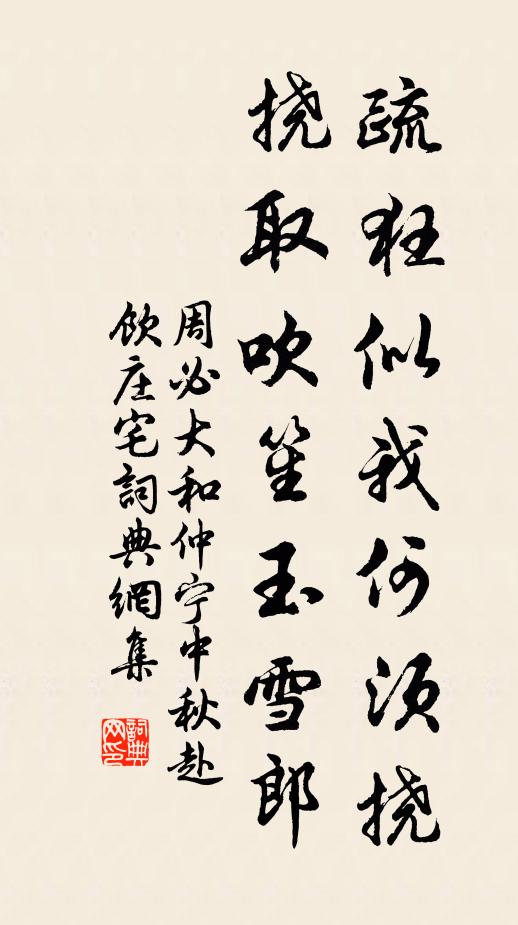 疏狂似我何须挠
挠取吹笙玉雪郎
周必大和仲宁中秋赴
饮庄宅詞典網集
詞典网印